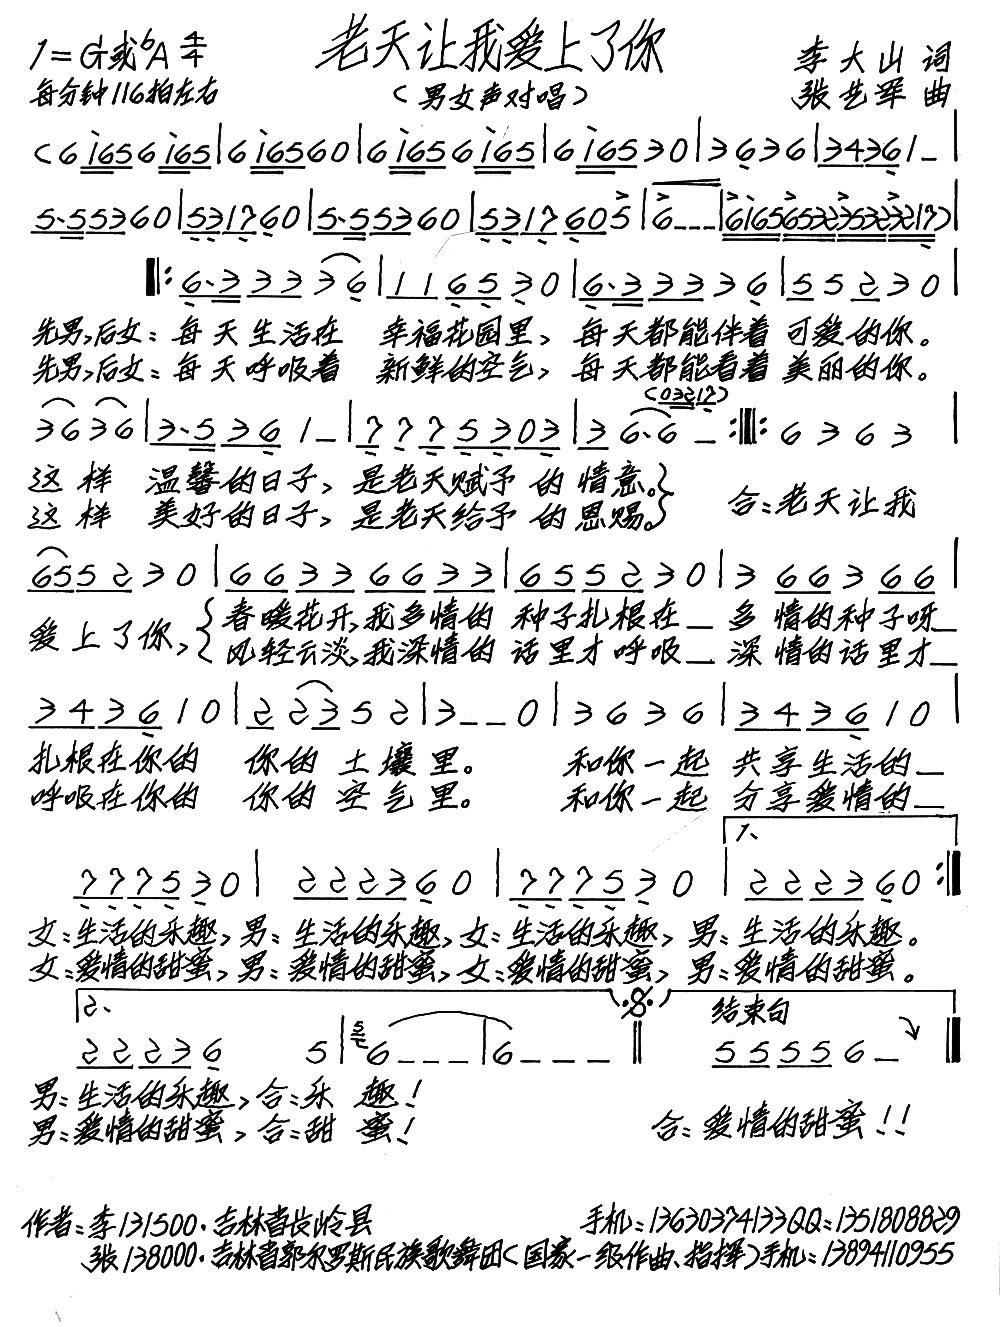 老天让我爱上了你
1=G或bA 4/4
李大山 词
每分钟116拍左右
(男女声对唱)
张艺军 曲
(6 i656 i65|6 i6560|6 i656 i65|6 i6530|3636|34361_|
5·55360|531760|5·55360|5317605|6___|6i65653235323217)
‖:6·333336|116530|6·333336|55230|
先男,后女:每天生活在 幸福花园里,每天都能伴着可爱的你。
先男,后女:每天呼吸着 新鲜的空气,每天都能看着美丽的你。
(03217)
3636|3·5361_|7775303|36·6_:‖:6363|
这样 温馨的日子,是老天赋予的情意。
这样 美好的日子,是老天给予的恩赐。
合:老天让我
655230|66336633|655230|366366|
爱上了你,
春暖花开,我多情的 种子扎根在_多情的种子呀_
风轻云淡,我深情的 话里才呼吸_深情的话里才_
343610|22352|3__0|3636|343610|
扎根在你的 你的土壤里。 和你一起 共享生活的_
呼吸在你的 你的空气里。 和你一起 分享爱情的_
1、
777530|222360|777530|222360:‖
女:生活的乐趣,男:生活的乐趣,女:生活的乐趣,男:生活的乐趣。
女:爱情的甜蜜,男:爱情的甜蜜,女:爱情的甜蜜,男:爱情的甜蜜。
2、
结束句
22236 5|6___|6___‖ 55556_‖
男:生活的乐趣,合:乐 趣!
男:爱情的甜蜜,合:甜 蜜!
合:爱情的甜蜜!!
作者:李131500·吉林省长岭县 手机:13630374133QQ:1351808829
张138000·吉林省郭尔罗斯民族歌舞团(国家一级作曲、指挥)手机:13894110955